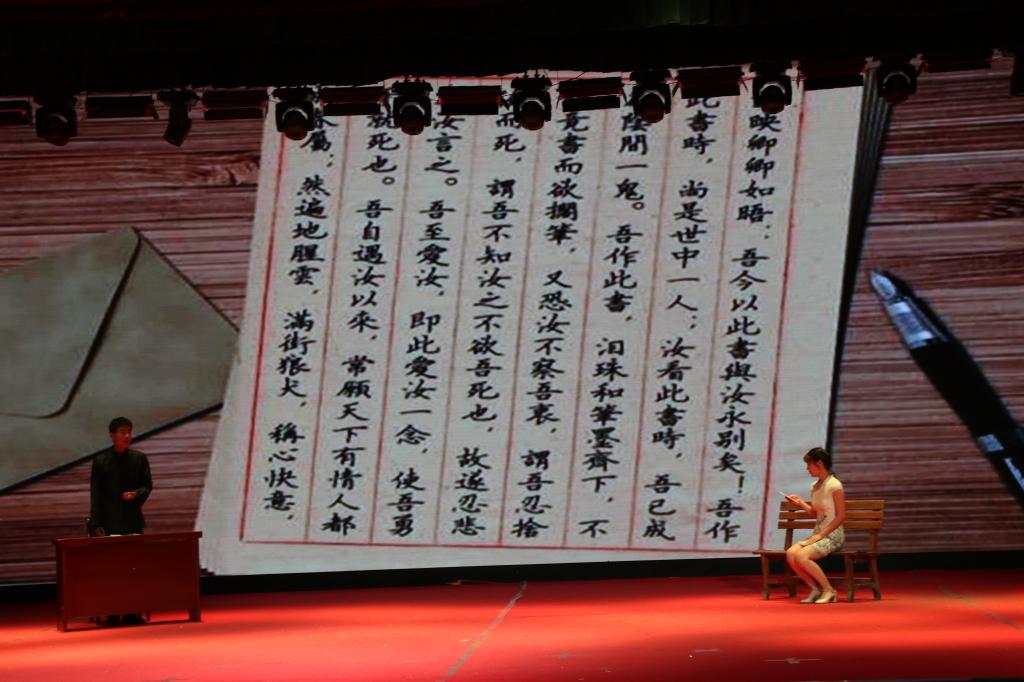 映卿卿如晤：吾今以此書與汝永別矣！吾作
此書時，尚是世中一人；汝看此書時，吾已成
陰間一鬼。吾作此書，泪珠和筆墨齊下，不
竟書而欲擱筆，又恐汝不察吾衷，謂吾忍捨
而死，謂吾不知汝之不欲吾死也，故遂忍悲
汝言之。吾至愛汝，即此愛汝一念，使吾勇
就死也。吾自遇汝以來，常願天下有情人都
屬，然遍地腥雲，滿街狼犬，稱心快意，